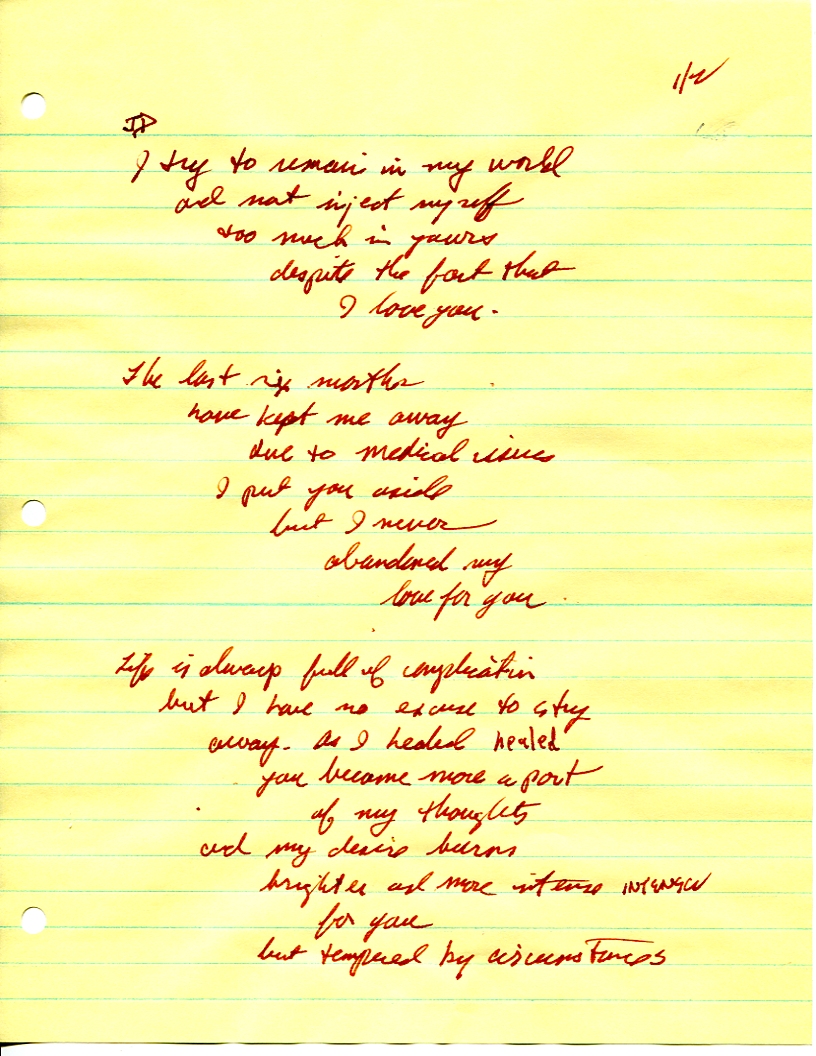 1/2
I try to remain in my world
and not inject myself
too much in yours
despite the fact that
I love you.
The last six months
have kept me away
due to medical issues
I put you aside
but I never
abandoned my
love for you
Life is always full of complication
but I have no excuse to stay
away. As I healed healed
you became more a part
of my thoughts
and my desire burns
brighter and more intense
for you
but tempered by circumstances